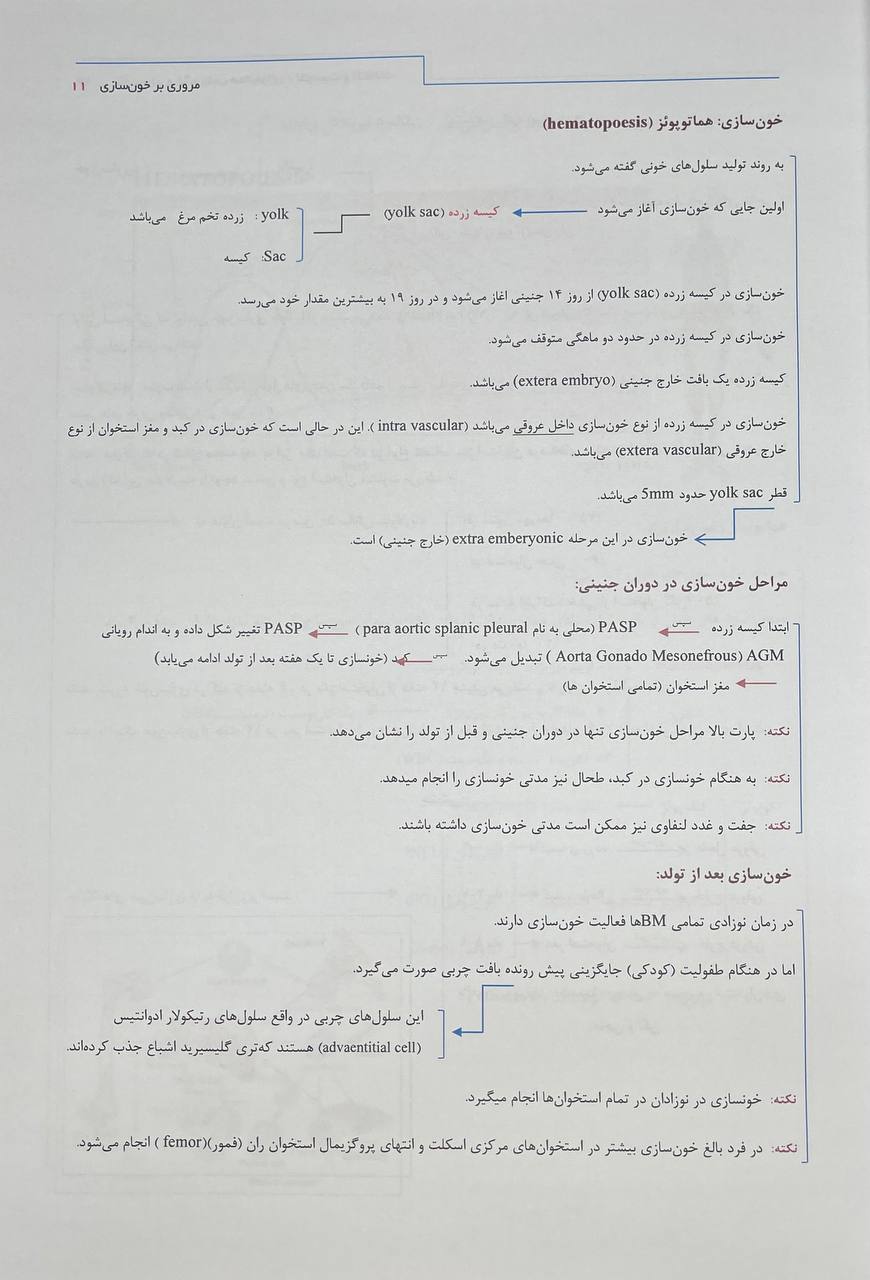 مروری بر خون‌سازی ۱۱
خون‌سازی: هماتوپوئز (hematopoesis)
به روند تولید سلول‌های خونی گفته می‌شود.
اولین جایی که خون‌سازی آغاز می‌شود کیسه زرده (yolk sac) yolk : زرده تخم مرغ می‌باشد
Sac: کیسه
خون‌سازی در کیسه زرده (yolk sac) از روز ۱۴ جنینی اغاز می‌شود و در روز ۱۹ به بیشترین مقدار خود می‌رسد.
خون‌سازی در کیسه زرده در حدود دو ماهگی متوقف می‌شود.
کیسه زرده یک بافت خارج جنینی (extera embryo) می‌باشد.
خون‌سازی در کیسه زرده از نوع خون‌سازی داخل عروقی می‌باشد (intra vascular ). این در حالی است که خون‌سازی در کبد و مغز استخوان از نوع
خارج عروقی (extera vascular) می‌باشد.
قطر yolk sac حدود 5mm می‌باشد.
خون‌سازی در این مرحله extra emberyonic (خارج جنینی) است.
مراحل خون‌سازی در دوران جنینی:
ابتدا کیسه زرده سپس PASP (محلی به نام para aortic splanic pleural ) سپس PASP تغییر شکل داده و به اندام رویانی
Aorta Gonado Mesonefrous) AGM ) تبدیل می‌شود. سپس کبد (خونسازی تا یک هفته بعد از تولد ادامه می‌یابد)
مغز استخوان (تمامی استخوان ها)
نکته: پارت بالا مراحل خون‌سازی تنها در دوران جنینی و قبل از تولد را نشان می‌دهد.
نکته: به هنگام خونسازی در کبد، طحال نیز مدتی خونسازی را انجام میدهد.
نکته: جفت و غدد لنفاوی نیز ممکن است مدتی خون‌سازی داشته باشند.
خون‌سازی بعد از تولد:
در زمان نوزادی تمامی BMها فعالیت خون‌سازی دارند.
اما در هنگام طفولیت (کودکی) جایگزینی پیش رونده بافت چربی صورت می‌گیرد.
این سلول‌های چربی در واقع سلول‌های رتیکولار ادوانتیس
(advaentitial cell) هستند که‌تری گلیسیرید اشباع جذب کرده‌اند.
نکته: خونسازی در نوزادان در تمام استخوان‌ها انجام میگیرد.
نکته: در فرد بالغ خون‌سازی بیشتر در استخوان‌های مرکزی اسکلت و انتهای پروگزیمال استخوان ران (فمور)(femor ) انجام می‌شود.